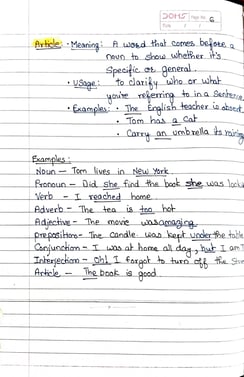 DOMS Page No. 6
Date / /
Article • Meaning: A word that comes before a
noun to show whether it's
specific or general.
• Usage: to clarify who or what
you're referring to in a Sentence
• Examples: • The English teacher is absent
• Tom has a Cat
• Carry an umbrella its raining
Examples:
Noun – Tom lives in New York.
Pronoun – Did she find the book she was look
Verb - I reached home.
Adverb – The tea is too hot
Adjective – The movie was amazing
preposition – The candle was kept under the table
Conjunction – I was at home all day, but I am
Interjection – Oh! I forgot to turn off the
Article. – The book is good.